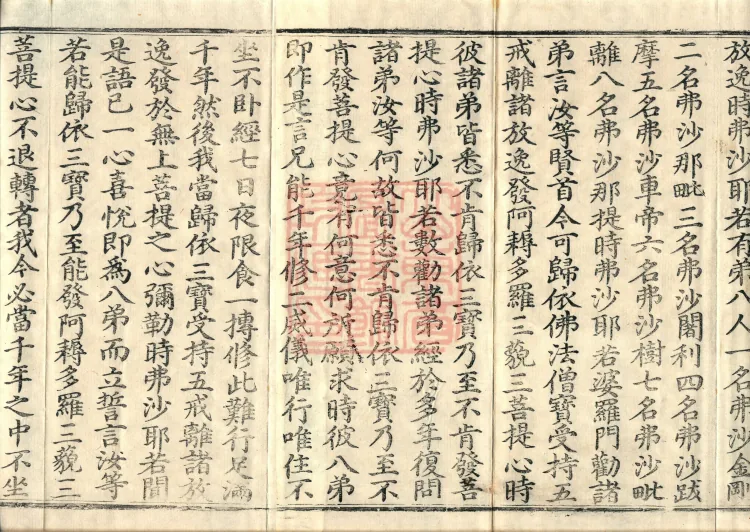 放逸時弗沙耶若有弟八人一名弗沙金剛
二名弗沙那毗三名弗沙闍利四名弗沙跋
摩五名弗沙車帝六名弗沙樹七名弗沙毗
離八名弗沙那提時弗沙耶若婆羅門勸諸
弟言汝等賢首今可歸依佛法僧寶受持五
戒離諸放逸發阿耨多羅三藐三菩提心時
彼諸弟皆悉不肯歸依三寶乃至不肯發菩
提心時弗沙耶若數勸諸弟經於多年復問
諸弟汝等何故皆悉不肯歸依三寶乃至不
肯發菩提心竟有何意何所願求時彼八弟
即作是言兄能千年修二威儀唯行唯住不
坐不卧經七日夜限食一摶修此難行足滿
千年然後我當歸依三寶受持五戒離諸放
逸發於無上菩提之心彌勒時弗沙耶若聞
是語已一心喜悅即為八弟而立誓言汝等
若能歸依三寶乃至能發阿耨多羅三藐三
菩提心不退轉者我今必當千年之中不坐